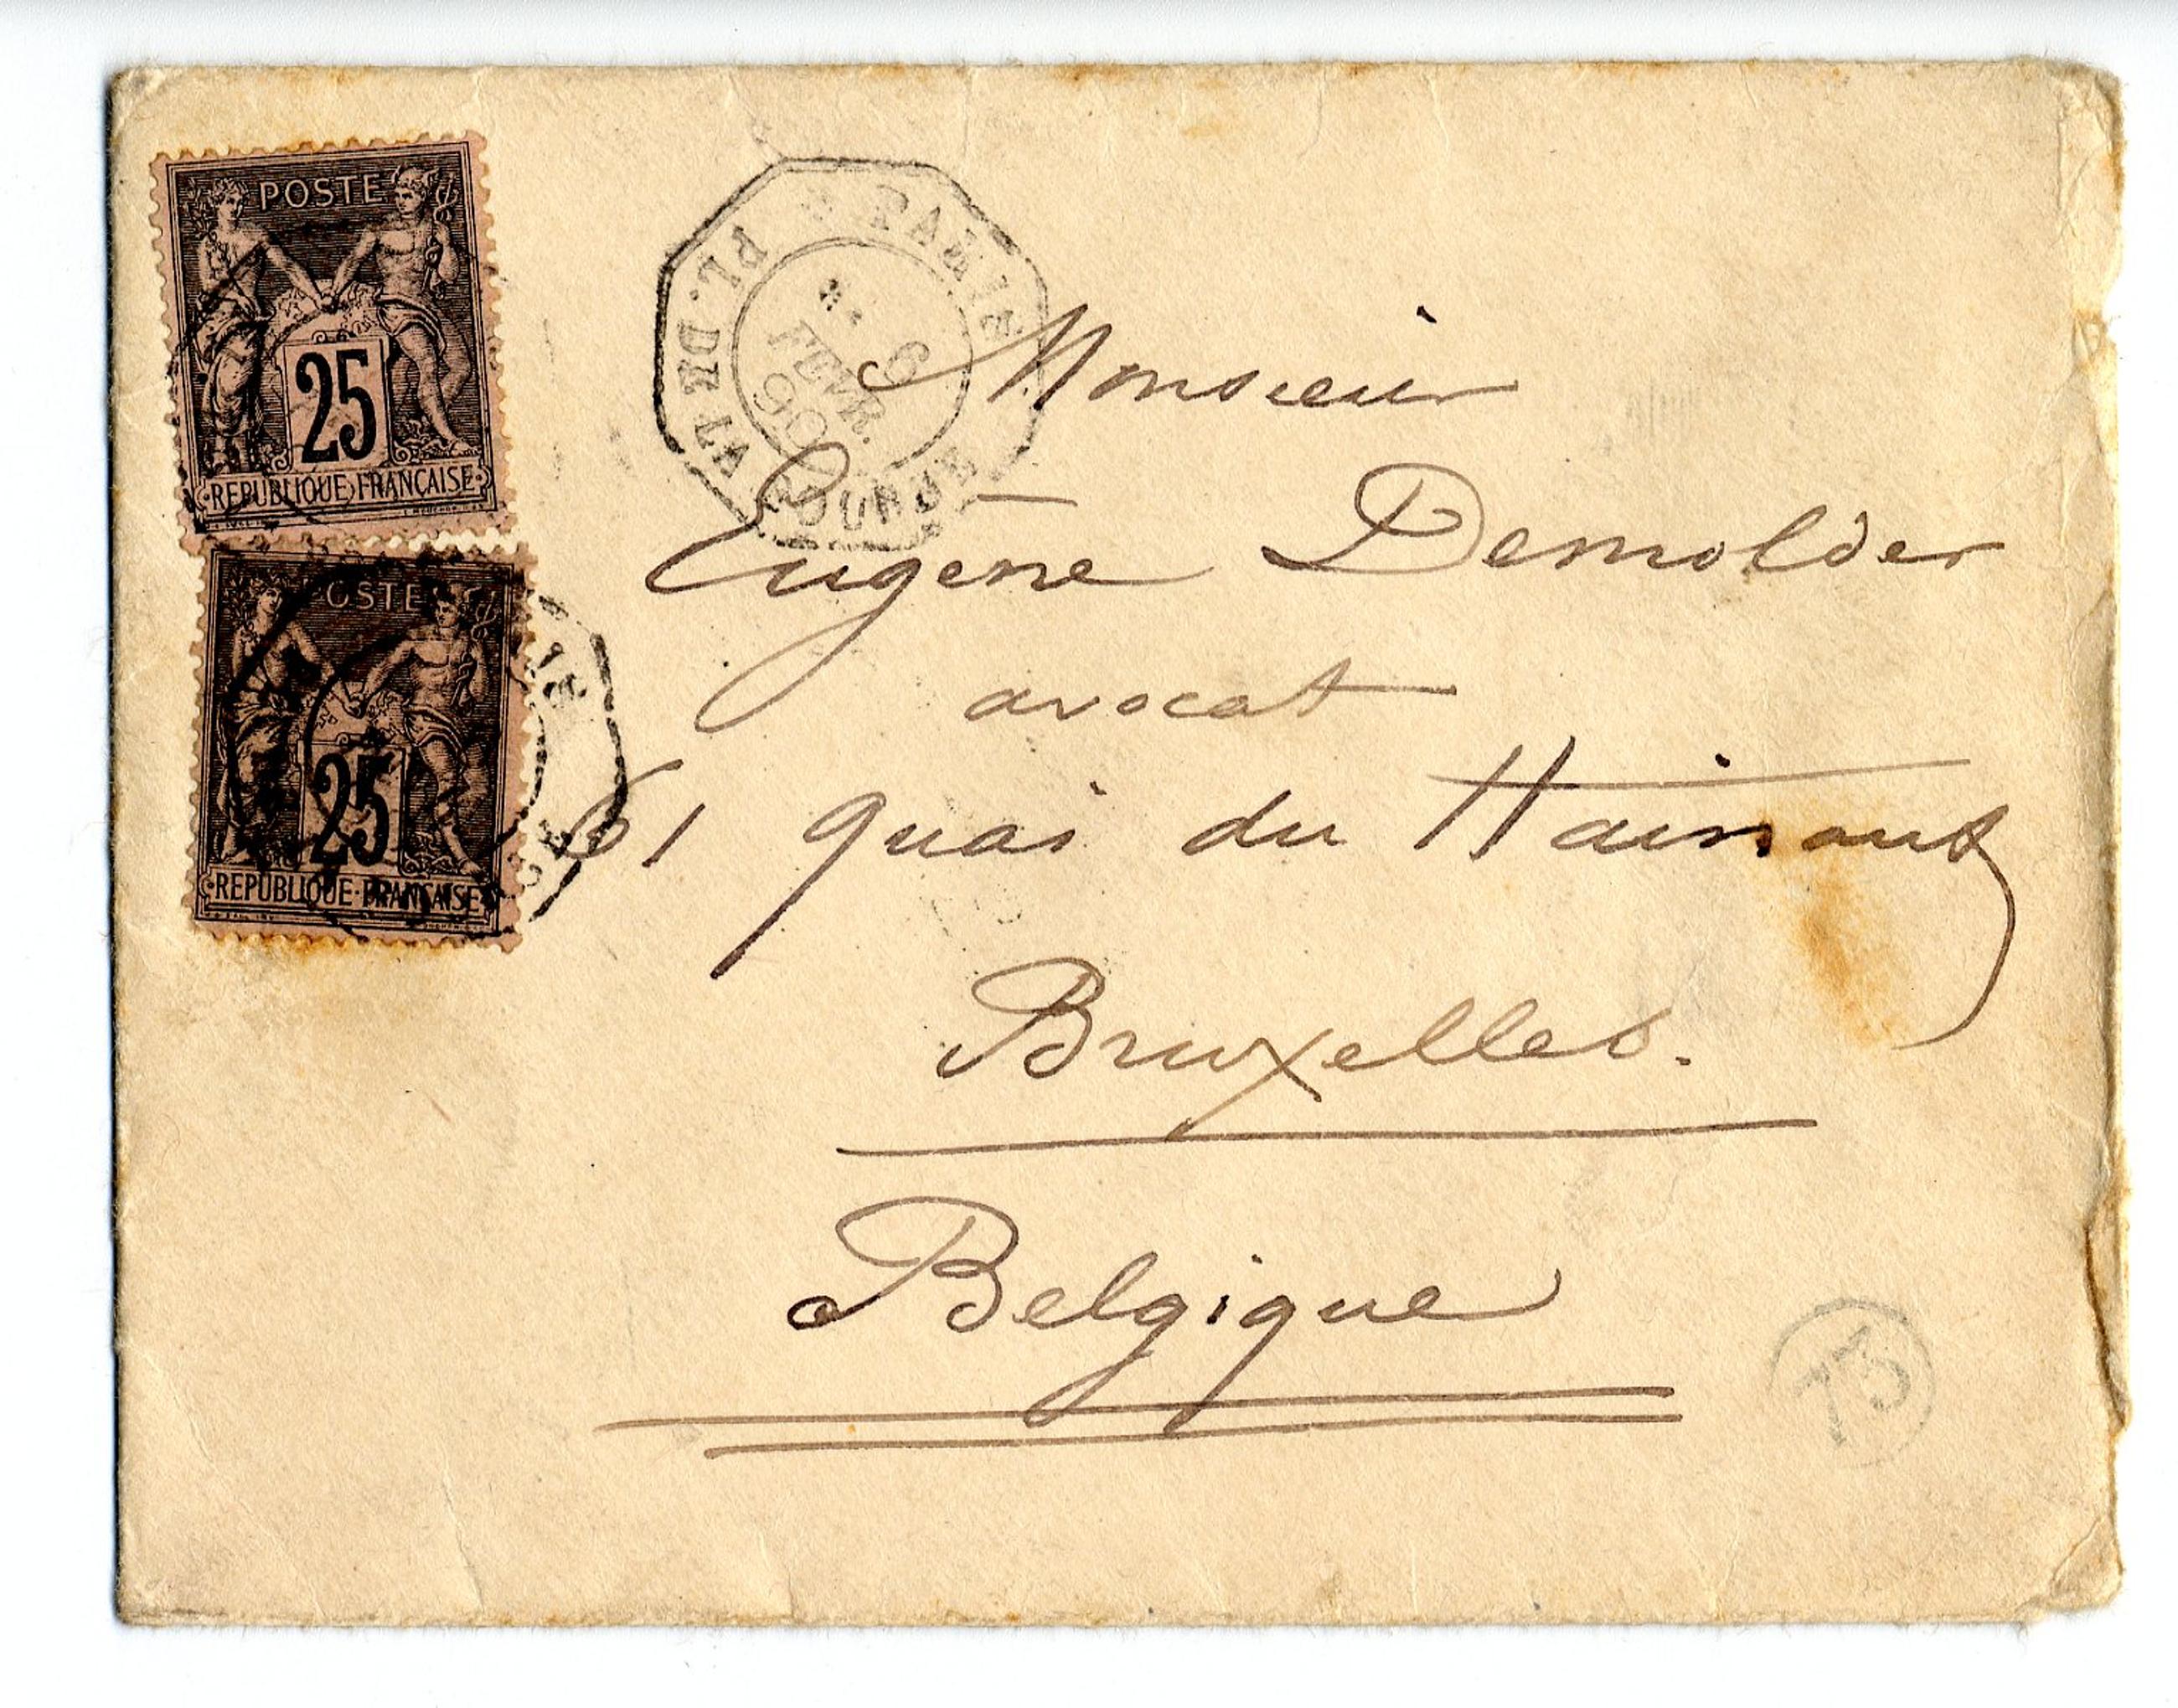 POSTE
25
REPUBLIQUE FRANÇAISE
POSTE
25
REPUBLIQUE FRANÇAISE
PARIS
PL. DE LA BOURSE
6
FEVR.
90
Monsieur
Eugène Demolder
avocat
61 quai du Hainaut
Bruxelles.
Belgique
75